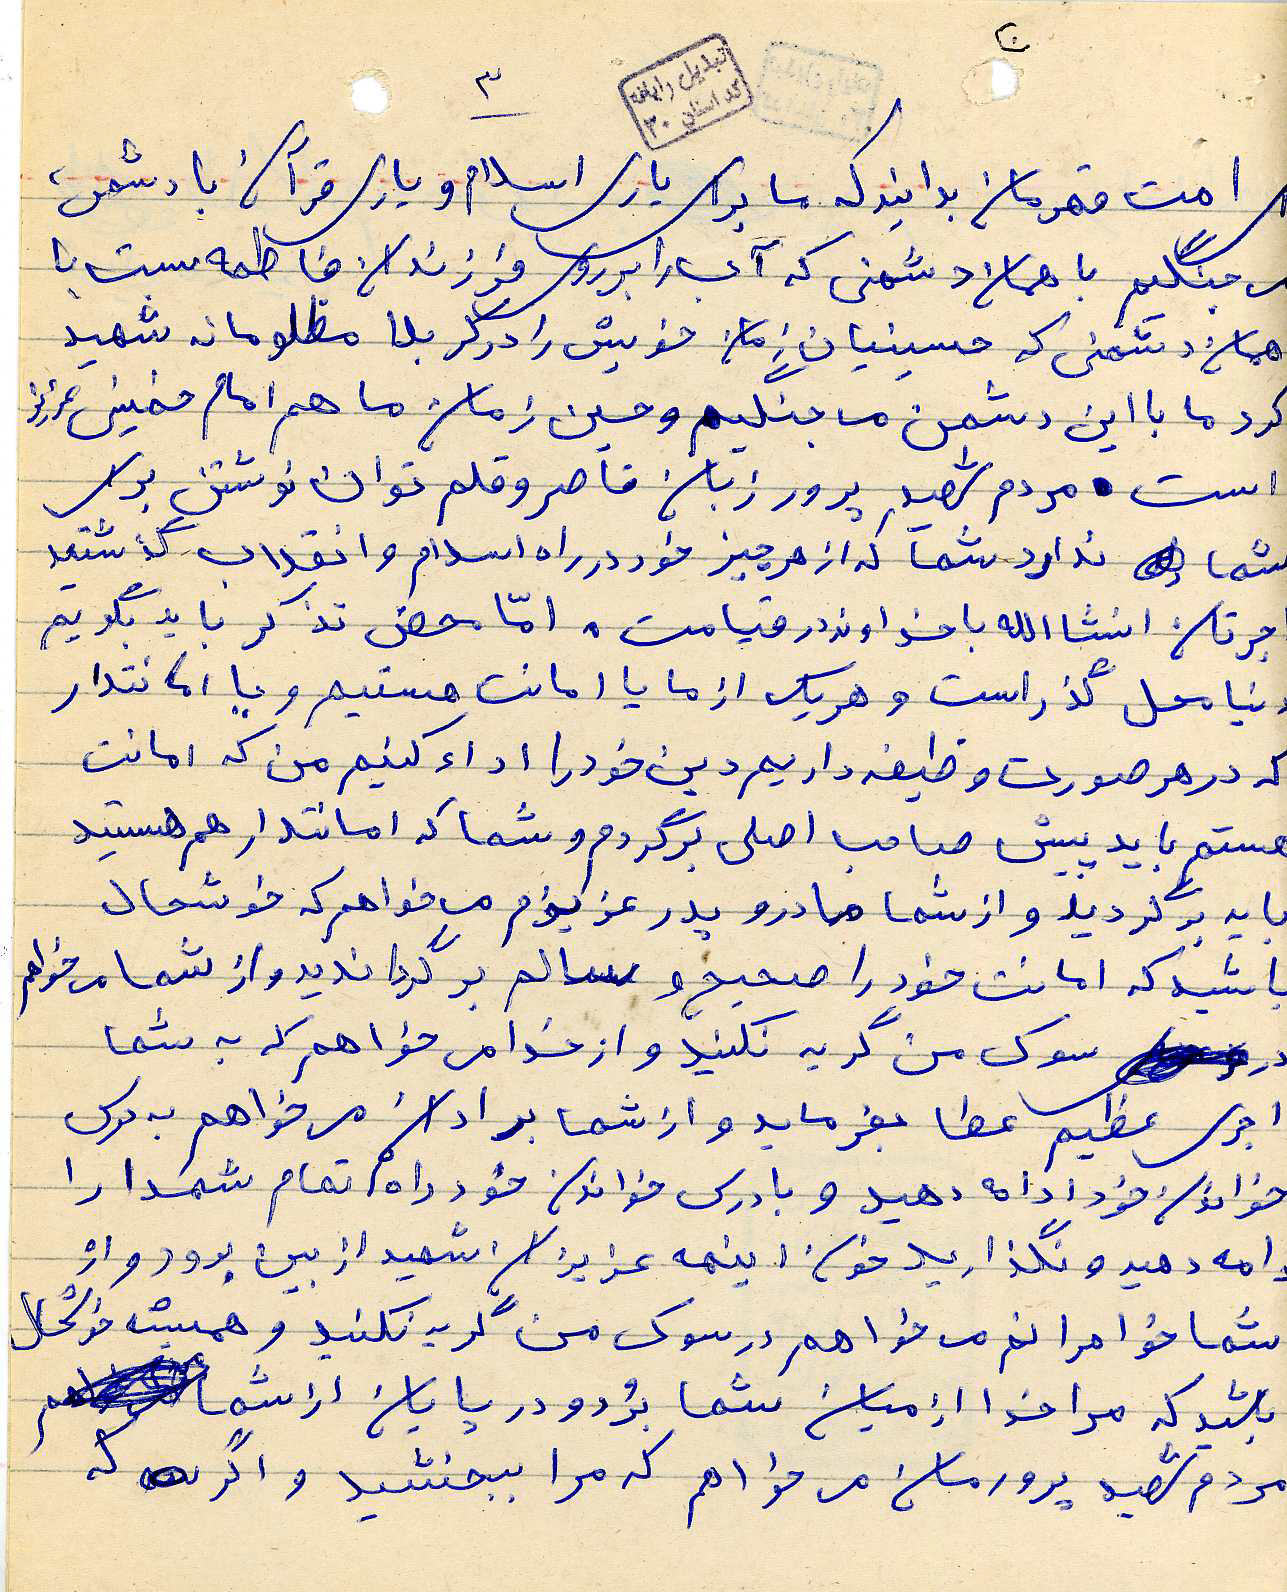 ۳
تبدیل رایانه
کد استان ۳۰
ای امت قهرمان بدانیدکه ما برای یاری اسلام و یاری قرآن با دشمن
می جنگیم با همان دشمنی که آب را بر روی فرزندان فاطمه بست با
همان دشمنی که حسینیان زمان خویش را در کربلا مظلومانه شهید
کرد ما با این دشمن می جنگیم و حسین زمان ما هم امام خمینی عزیز
است . مردم شهید پرور زبان قاصر و قلم توان نوشتن برای
شما ندارد شما که از هر چیز خود در راه اسلام و انقلاب گذشتید
اجرتان انشاالله با خداوند در قیامت . امّا محض تذکر باید بگویم
دنیا محل گذر است و هر یک از ما یا امانت هستیم و یا امانتدار
که در هر صورت وظیفه داریم دین خود را اداء کنیم من که امانت
هستم باید پیش صاحب اصلی برگردم و شما که امانتدار هم هستید
باید برگردید و از شما مادر و پدر عزیزم می خواهم که خوشحال
باشید که امانت خود را صحیح و سالم برگرداندید و از شما می خواهم
در سوک من گریه نکنید و از خدا می خواهم که به شما
اجری عظیم عطا بفرماید و از شما برادران می خواهم به درس
خواندن خود ادامه دهید و با درس خواندن خود راه تمام شهدا را
ادامه دهید و نگذارید خون اینهمه عزیزان شهید از بین برود و از
شما خواهرانم می خواهم در سوک من گریه نکنید و همیشه خوشحال
باشید که مرا خدا از میان شما بُرد و در پایان از شما
مردم شهید پرورمان می خواهم که مرا ببخشید و اگر که